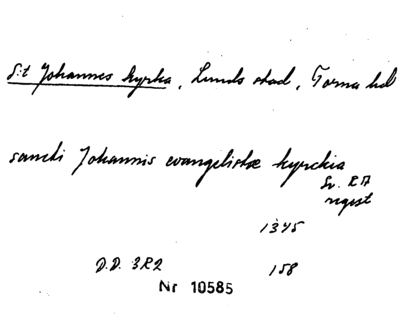 S:t Johannes kyrka, Lunds stad, Torna hd
sancti Johannis evangelistæ kyrckia
Sv. RA
regest
1345
D.D. 3R2 158
Nr 10585